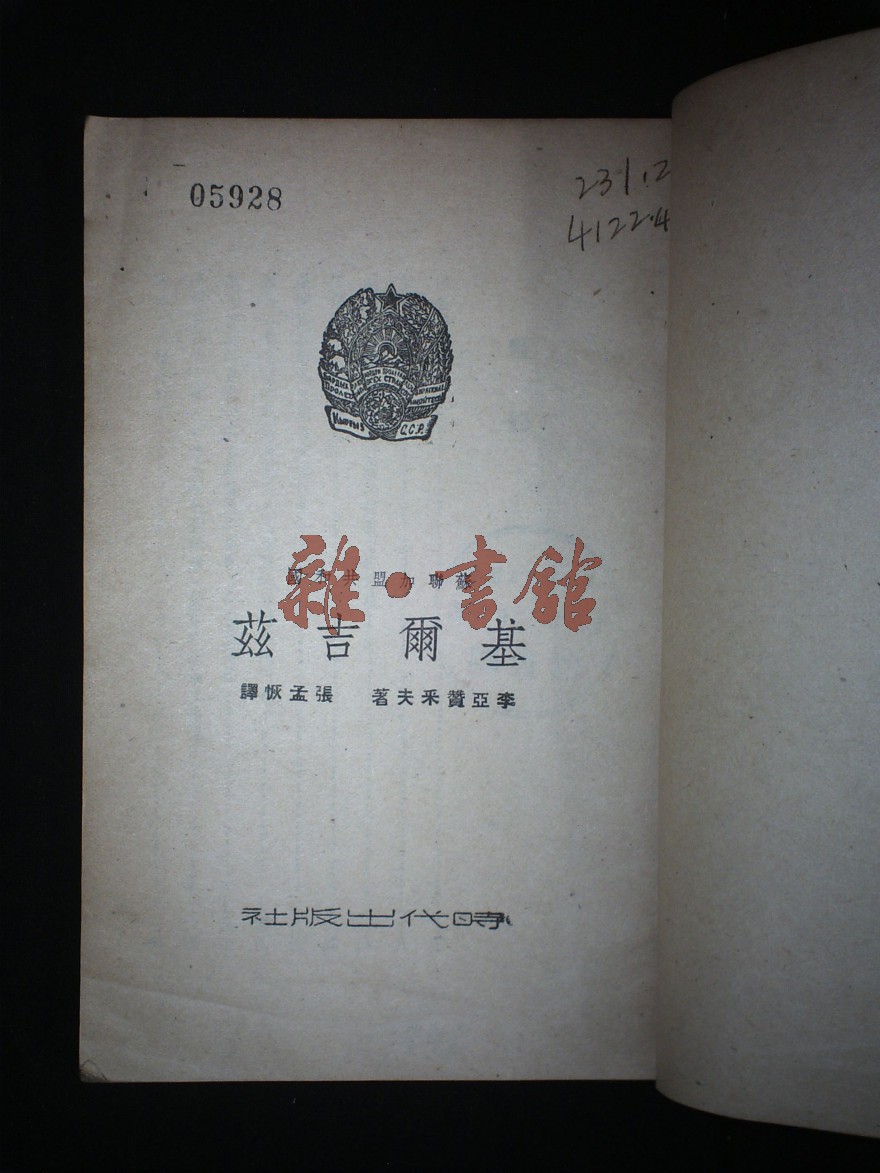 05928
231.2
4122.4
Кыргыз С.С.Р.
蘇聯加盟共和國
雜·書館
基爾吉茲
李亞贊釆夫著 張孟恢譯
時代出版社